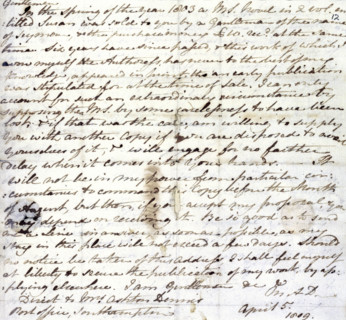 Gentlemen
In the Spring of the year 1803 a MS. Novel in 2 vol. en-
titled Susan was sold to you by a Gentleman of the name
of Seymour, & the purchase money £10. recd. at the same
time. Six years have since passed, & this work of which I
avow myself the Authoress, has never to the best of my
knowledge, appeared in print, tho' an early publication
was stipulated for at the time of Sale. I can only
account for such an extraordinary circumstance by
supposing the MS. by some carelessness to have been
lost; & if that was the case, am willing to supply
you with another Copy if you are disposed to avail
yourselves of it, & will engage for no farther
delay when it comes into your hands. It
will not be in my power from particular cir-
cumstances to command this Copy before the Month
of August, but then, if you accept my proposal, you
may depend on receiving it. Be so good as to send
me a Line in answer as soon as possible, as my
stay in this place will not exceed a few days. Should
no notice be taken of this address, I shall feel myself
at liberty to secure the publication of my work, by ap-
plying elsewhere. I am Gentlemen &c
M.A.D.
Direct to Mrs Ashton Dennis April 5.
Post office, Southampton 1809.
12